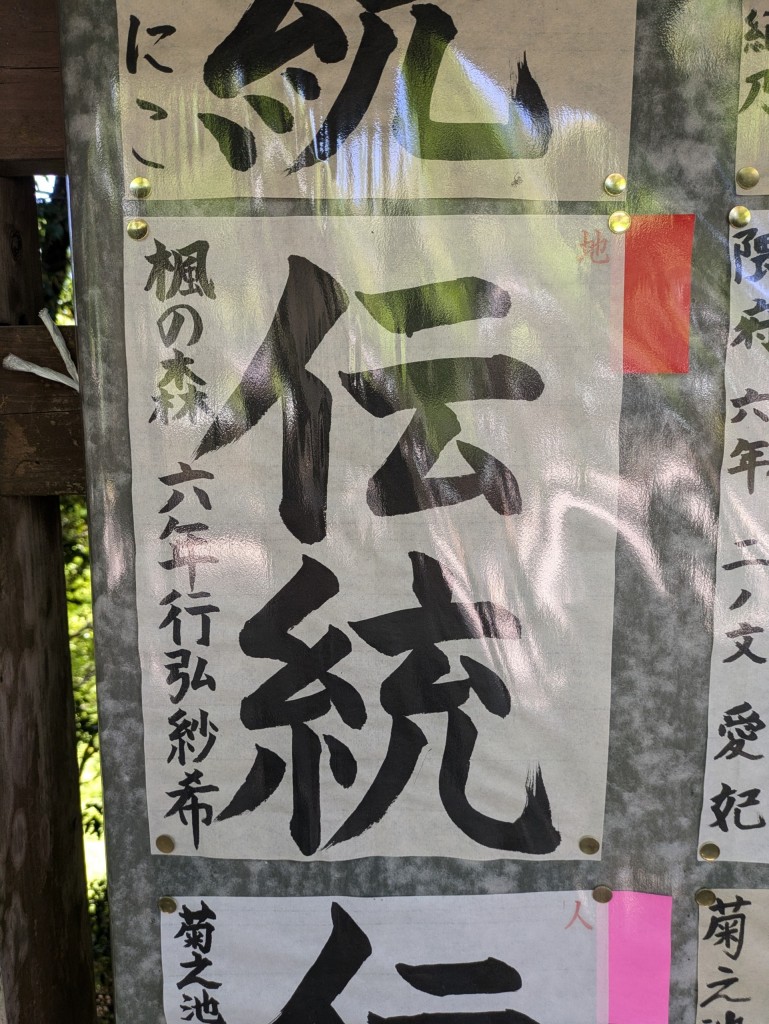 統
にこ
地
伝統
楓の森 六年 行弘紗希
人
伝
菊之池
乃
隈府 六年 二ノ文 愛妃
菊之池